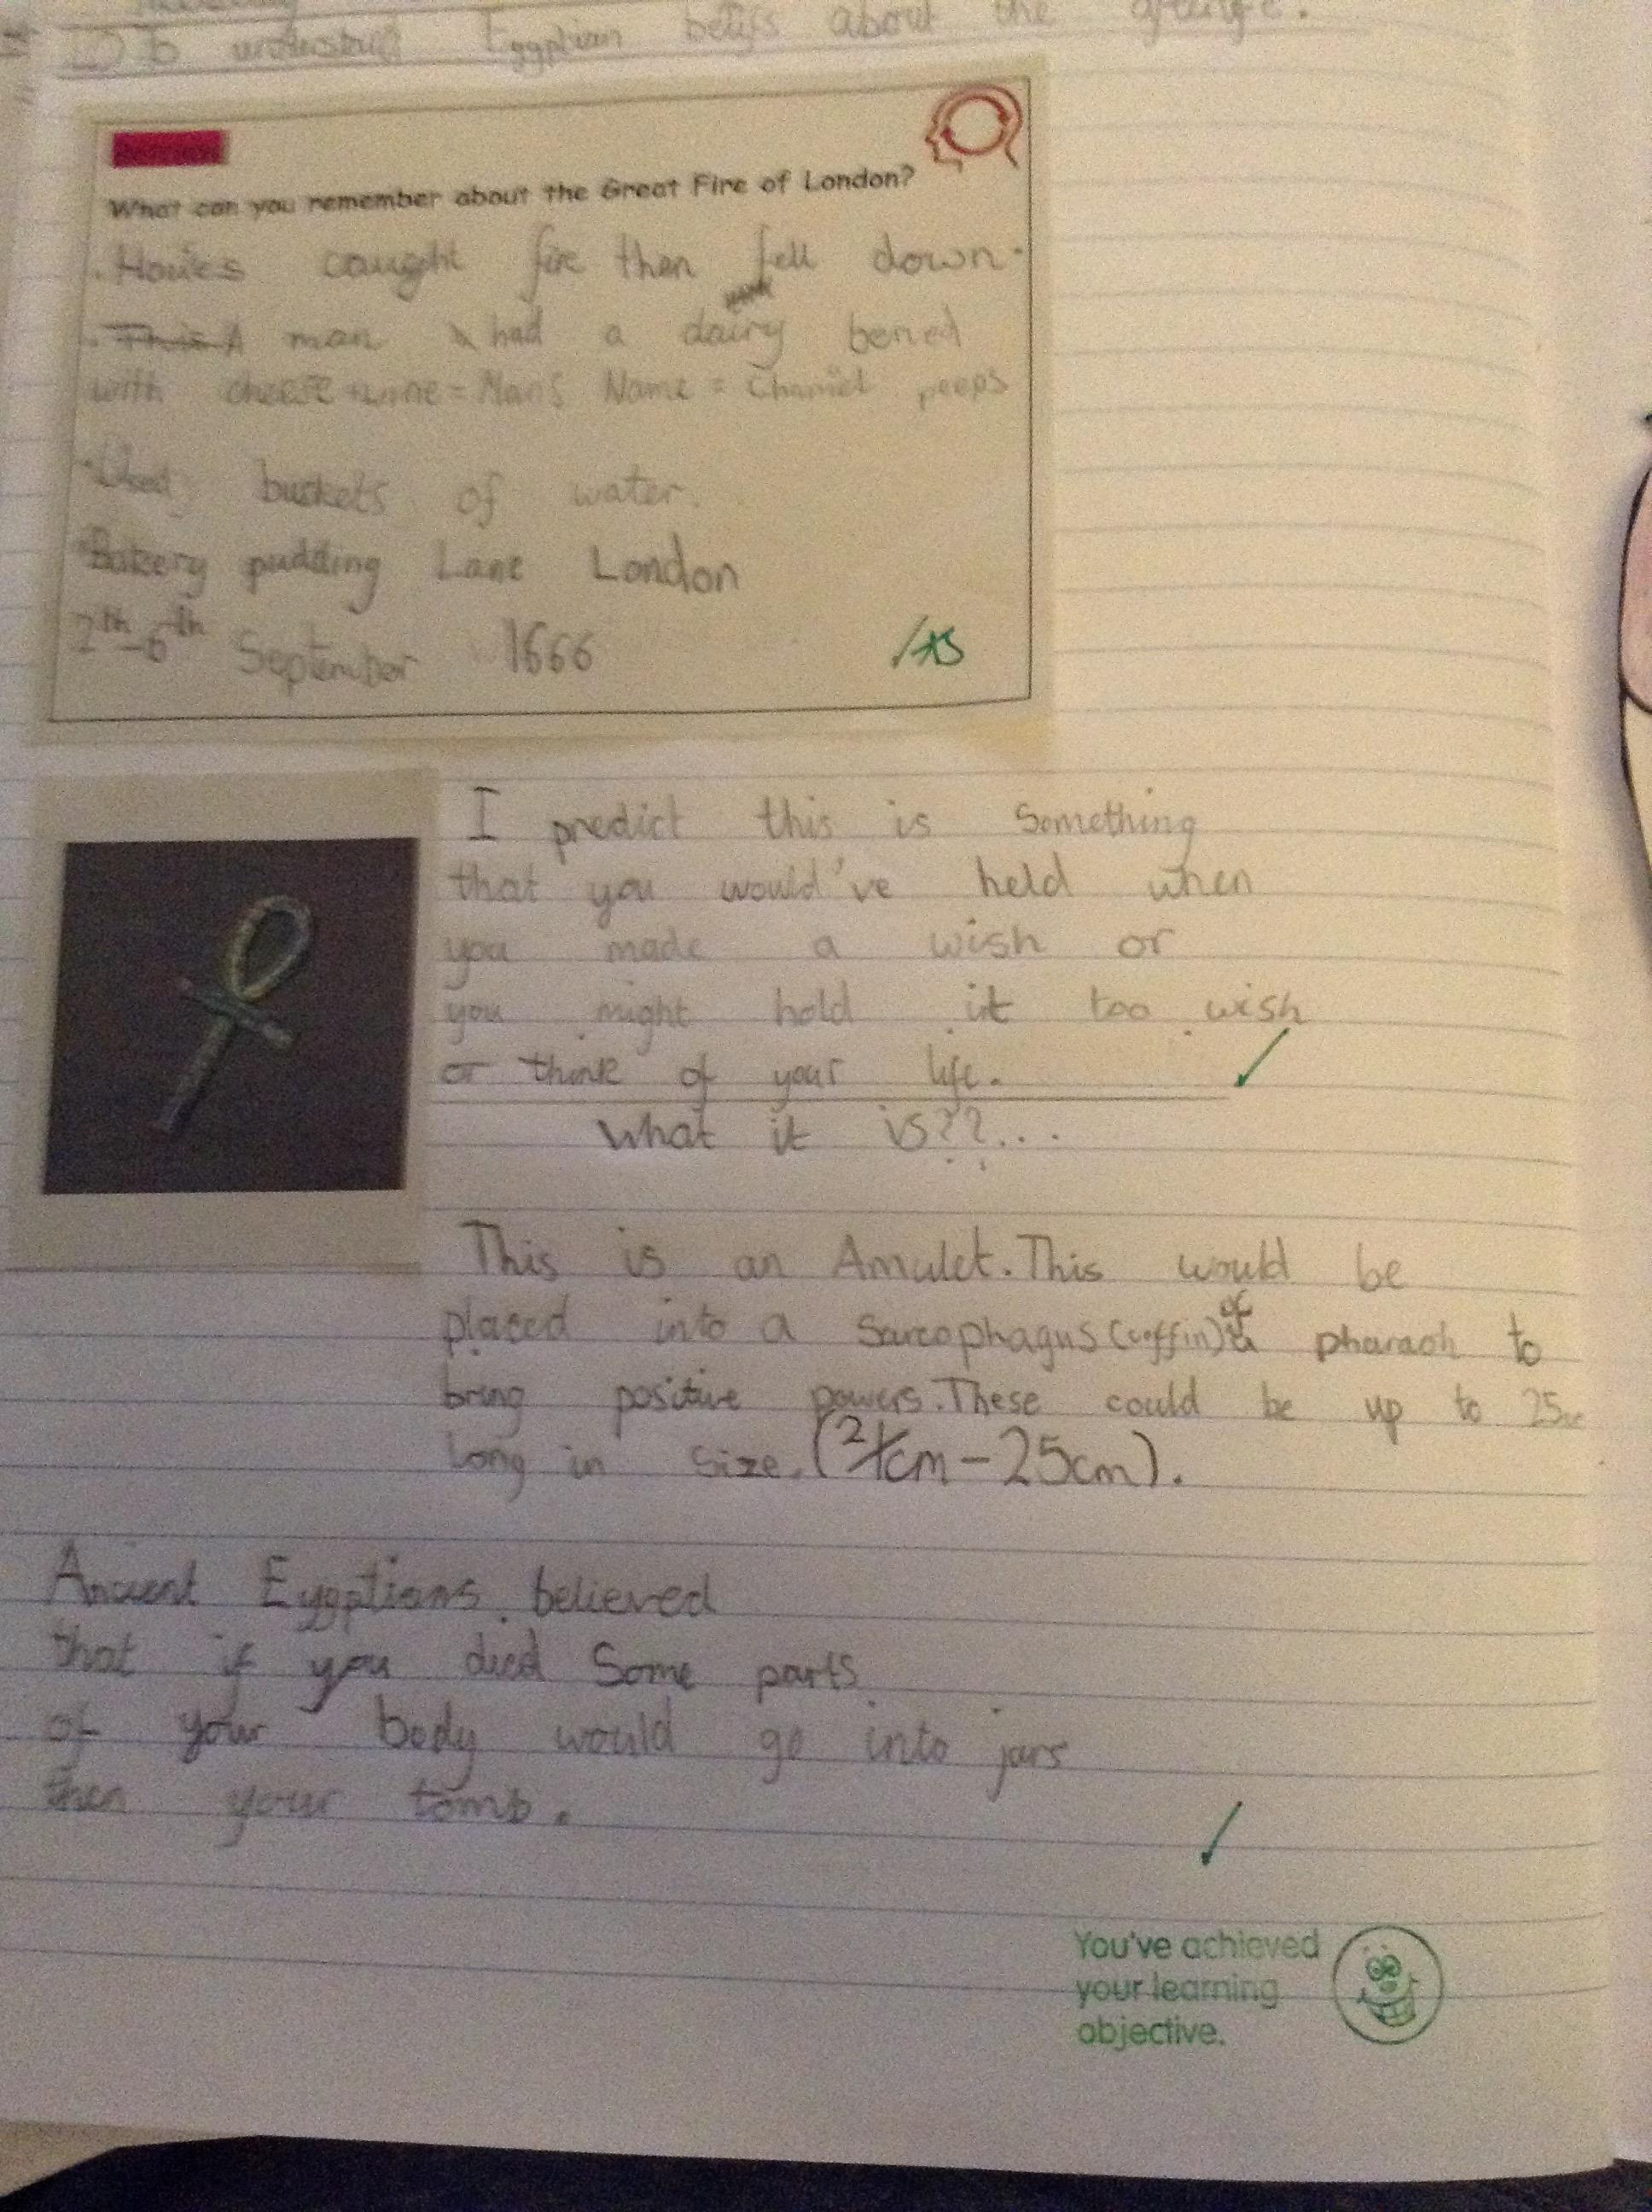 LO To understand Egyptian beliefs about the afterlife.
What can you remember about the Great Fire of London?
. Houses caught fire then fell down.
. This A man had a dairy beried
with cheese + wine = Mans Name = Chamiel peeps
. Used buckets of water.
. Bakery pudding Lane London
2th-6th September 1666
I predict this is something
that you would've held when
you made a wish or
you might hold it too wish
or think of your life.
What it is??...
This is an Amulet. This would be
placed into a Sarcophagus (coffin) of a pharaoh to
bring positive powers. These could be up to 25cm
long in size. (2cm - 25cm).
Ancient Eygptians believed
that if you died Some parts
of your body would go into jars
then your tomb.
You've achieved
your learning
objective.